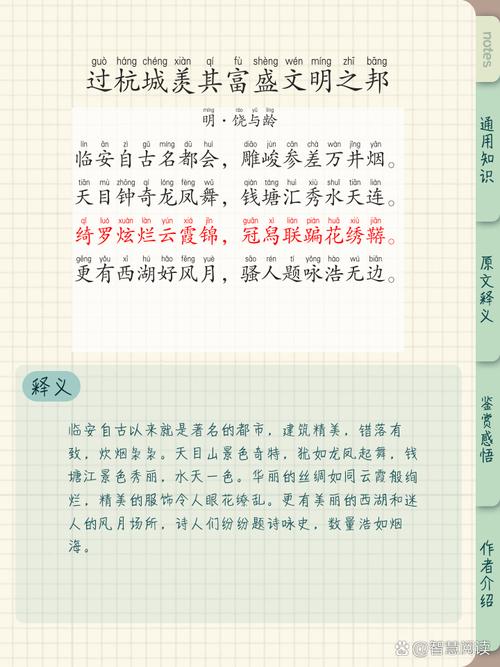 guò háng chéng xiàn qí fù shèng wén míng zhī bāng
过杭城羡其富盛文明之邦
míng ráo yǔ líng
明·饶与龄
lín ān zì gǔ míng dū huì diāo jùn cēn chà wàn jǐng yān
临安自古名都会，雕峻参差万井烟。
tiān mù zhōng qí lóng fèng wǔ qián táng huì xiù shuǐ tiān lián
天目钟奇龙凤舞，钱塘汇秀水天连。
qǐ luó xuàn làn yún xiá jǐn guān xì lián piān huā xiù jiān
绮罗炫烂云霞锦，冠舄联蹁花绣鞯。
gèng yǒu xī hú hǎo fēng yuè sāo rén tí yǒng hào wú biān
更有西湖好风月，骚人题咏浩无边。
释义
临安自古以来就是著名的都市，建筑精美，错落有
致，炊烟袅袅。天目山景色奇特，犹如龙凤起舞，钱
塘江景色秀丽，水天一色。华丽的丝绸如同云霞般绚
烂，精美的服饰令人眼花缭乱。更有美丽的西湖和迷
人的风月场所，诗人们纷纷题诗咏史，数量浩如烟
海。
notes
通用知识
原文释义
鉴赏感悟
作者介绍
@智慧阅读